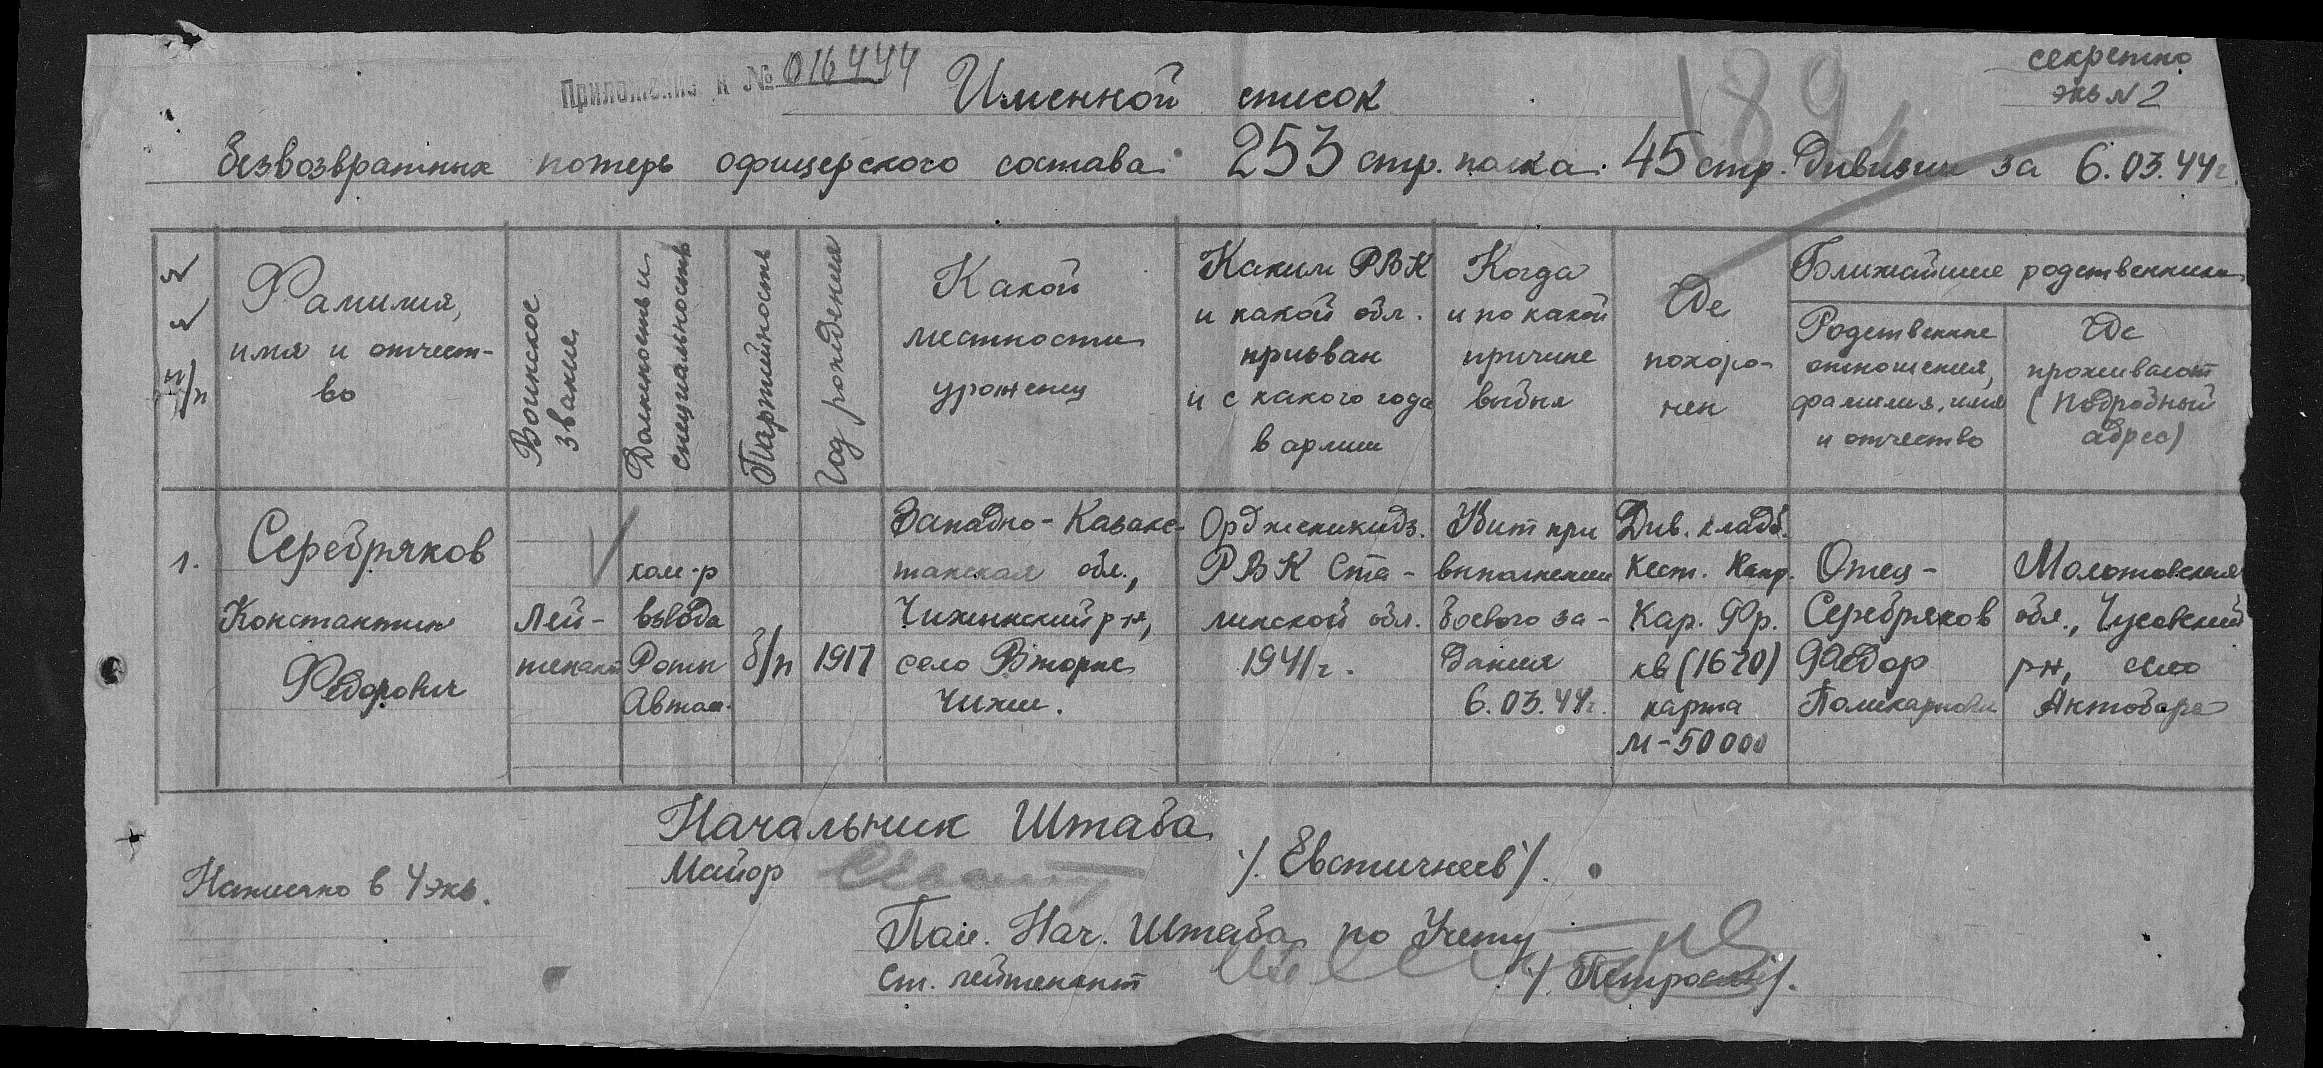 Приложение к № 016444
189
секретно
экз N 2
Именной список
безвозвратных потерь офицерского состава 253 стр. полка. 45 стр. дивизии за 6.03.44г.
№№ п/п
Фамилия,
имя и отчест-
во
Воинское
звание
Должность и
специальность
Партийность
Год рождения
Какой
местности
уроженец
Каким РВК
и какой обл.
призван
и с какого года
в армии
Когда
и по какой
причине
выбыл
Где
похоро-
нен
Ближайшие родственники
Родственные
отношения,
фамилия, имя
и отчество
Где
проживают
(Подробный
адрес)
1.
Серебряков
Константин
Федорович
Лей-
тенант
ком-р
взвода
Роты
Автом.
б/п
1917
Западно-Казахс-
танская обл.,
Чижинский р-н,
село Вторые
Чижи.
Орджоникидз.
РВК Ста-
линской обл.
1941г.
Убит при
выполнении
боевого за-
дания
6.03.44г.
Див. кладб.
Кест. Напр.
Кар. Фр.
кв (1620)
карта
М-50000
Отец-
Серебряков
Федор
Поликарпович
Молотовская
обл., Чусовский
р-н, село
Антобара
Начальник Штаба
Майор /Евстигнеев/.
Написано в 4 экз.
Пом. Нач. Штаба по Учету
Ст. лейтенант